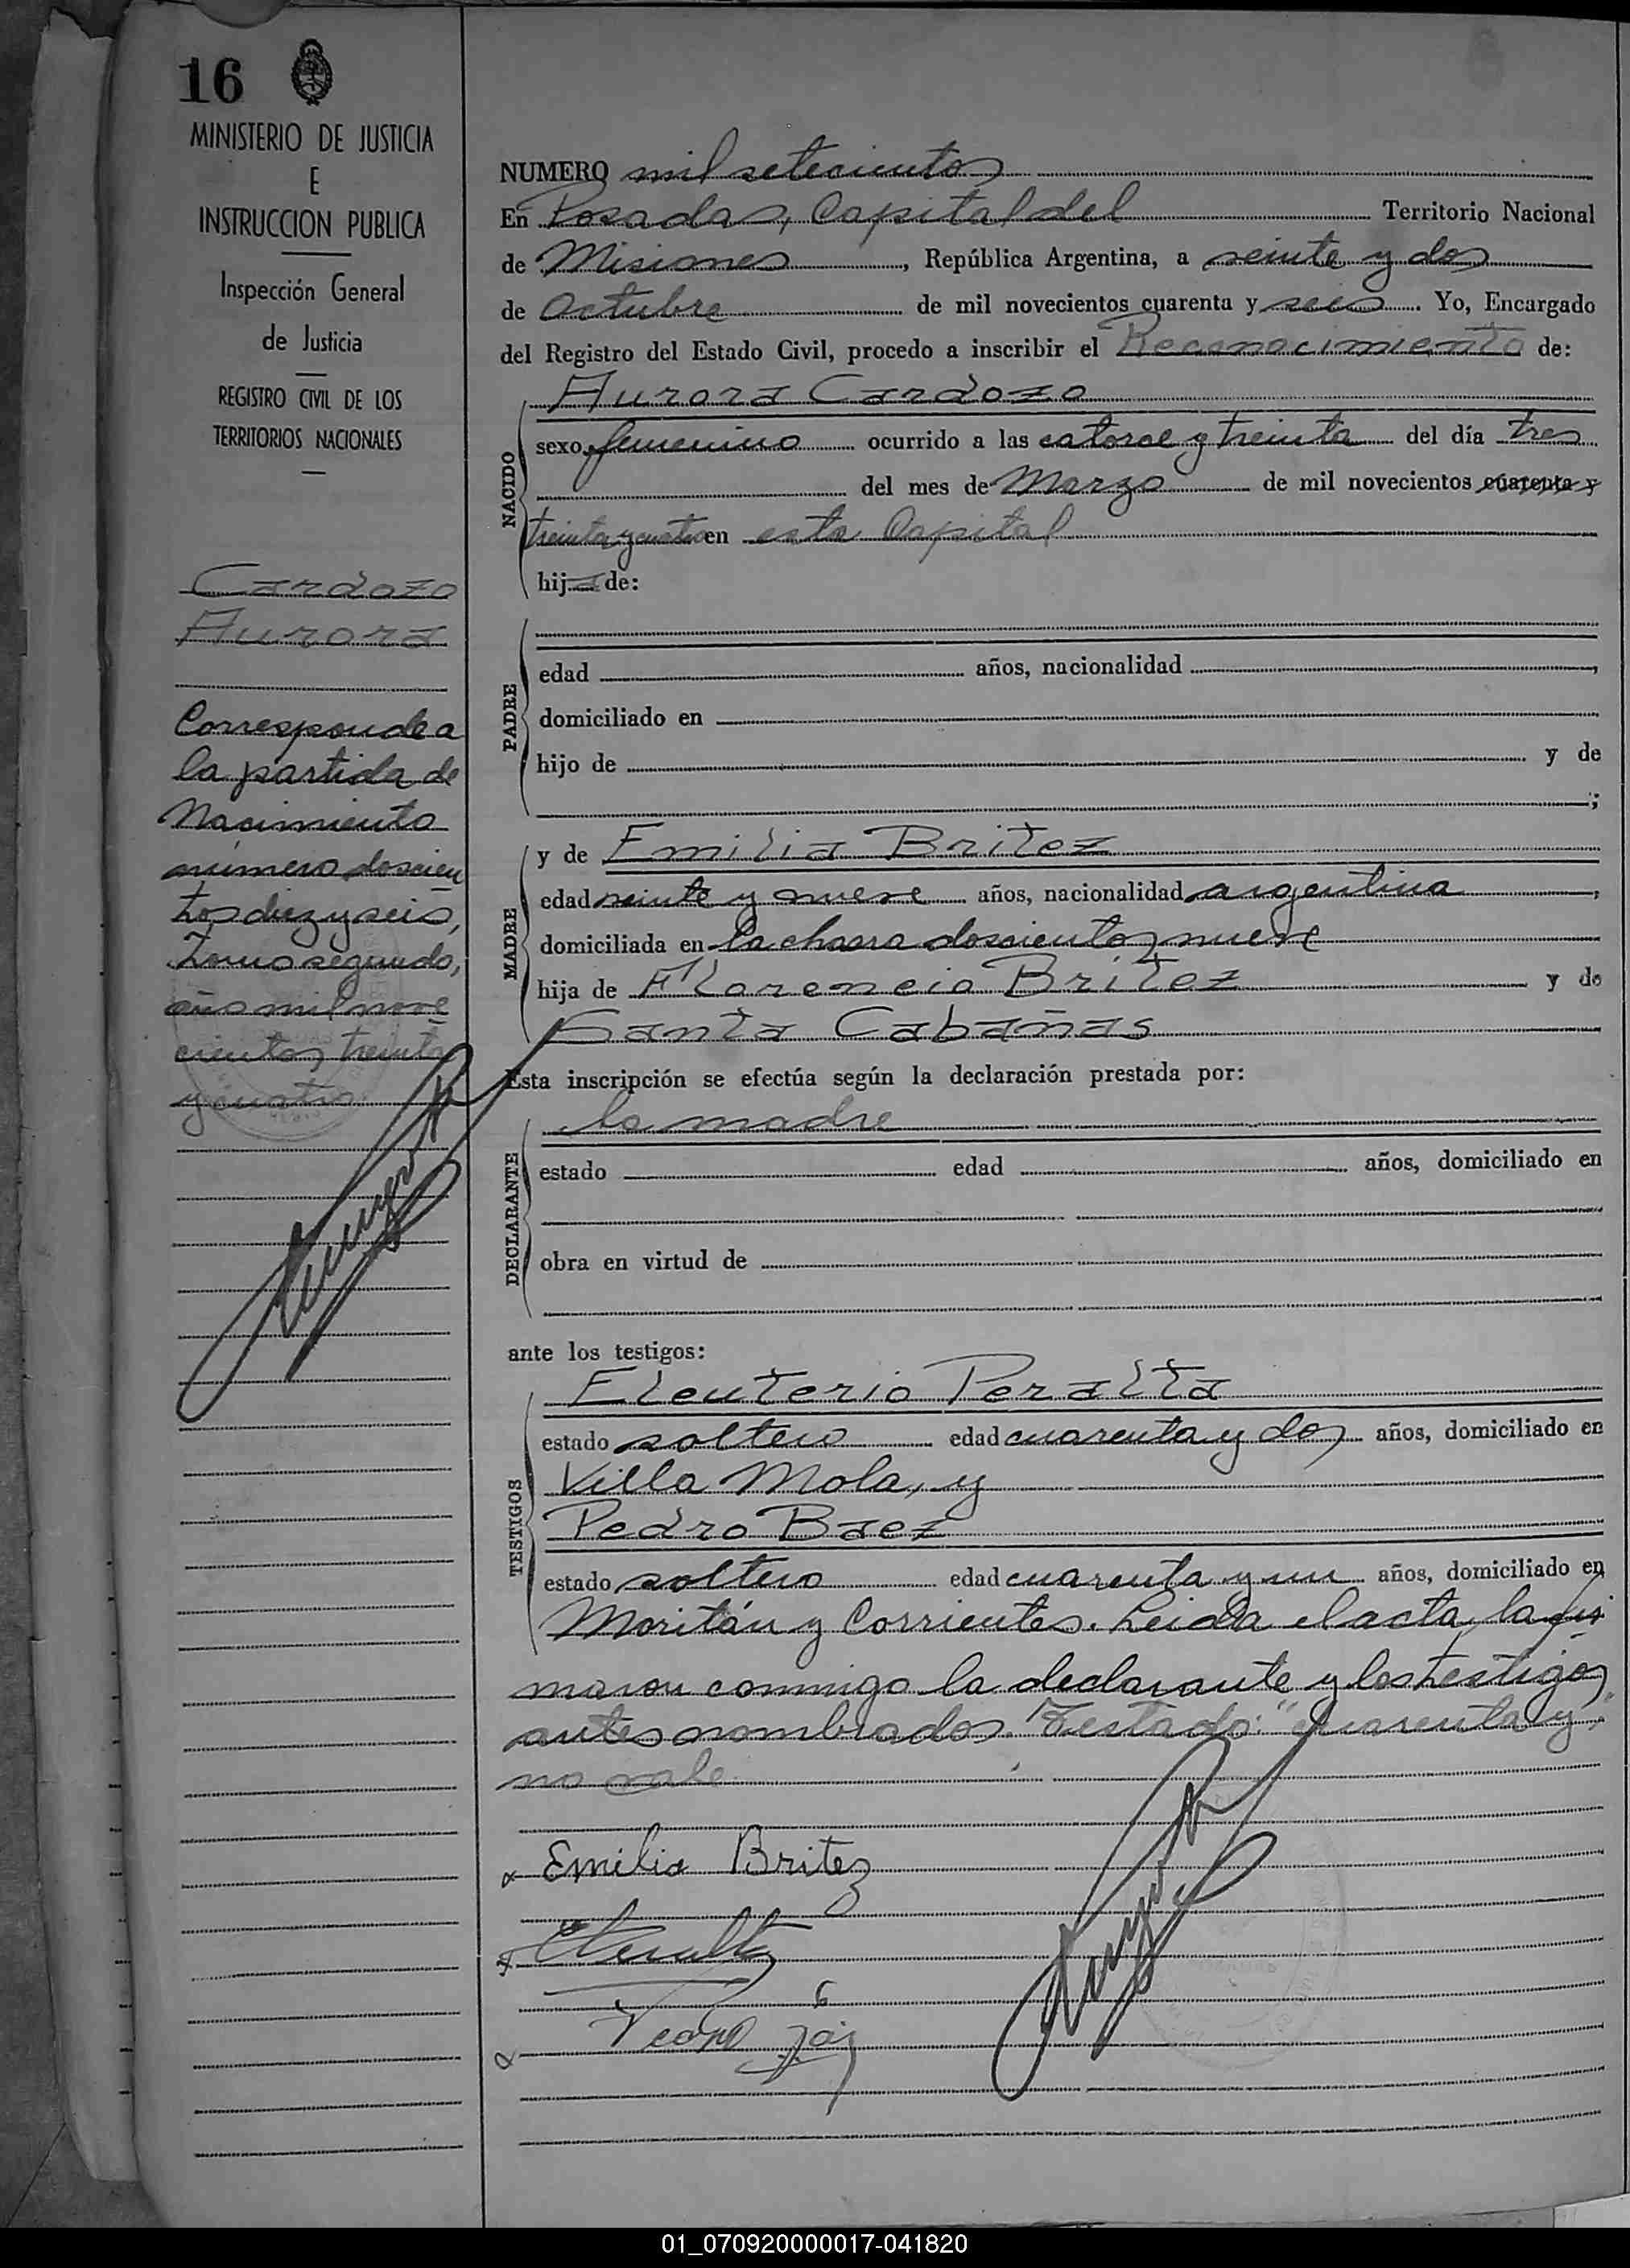 16
MINISTERIO DE JUSTICIA
E
INSTRUCCION PUBLICA
Inspección General
de Justicia
REGISTRO CIVIL DE LOS
TERRITORIOS NACIONALES
Cardozo
Aurora
Corresponde a
la partida de
Nacimiento
número doscien
tos diez y seis,
Tomo segundo,
año mil nove
cientos treinta
y cuatro
NUMERO mil setecientos
En Posadas, Capital del Territorio Nacional
de Misiones, República Argentina, a veinte y dos
de Octubre de mil novecientos cuarenta y seis. Yo, Encargado
del Registro del Estado Civil, procedo a inscribir el Reconocimiento de:
NACIDO
Aurora Cardozo
sexo femenino ocurrido a las catorce y treinta del día tres
del mes de Marzo de mil novecientos cuarenta y
treinta y cuatro en esta Capital
hija de:
PADRE
edad años, nacionalidad ,
domiciliado en
hijo de y de
;
MADRE
y de Emilia Britez
edad veinte y nueve años, nacionalidad argentina ,
domiciliada en la chacra doscientos nueve
hija de Florencio Britez y de
Santa Cabañas
Esta inscripción se efectúa según la declaración prestada por:
DECLARANTE
la madre
estado edad años, domiciliado en
obra en virtud de
ante los testigos:
TESTIGOS
Eleuterio Peralta
estado soltero edad cuarenta y dos años, domiciliado en
Villa Mola, y
Pedro Baez
estado soltero edad cuarenta y un años, domiciliado en
Moritán y Corrientes. Leida el acta, la fir
maron conmigo la declarante y los testigos
antes nombrados. Testado: "cuarenta y"
no vale
Emilia Britez
Pedro
01_070920000017-041820